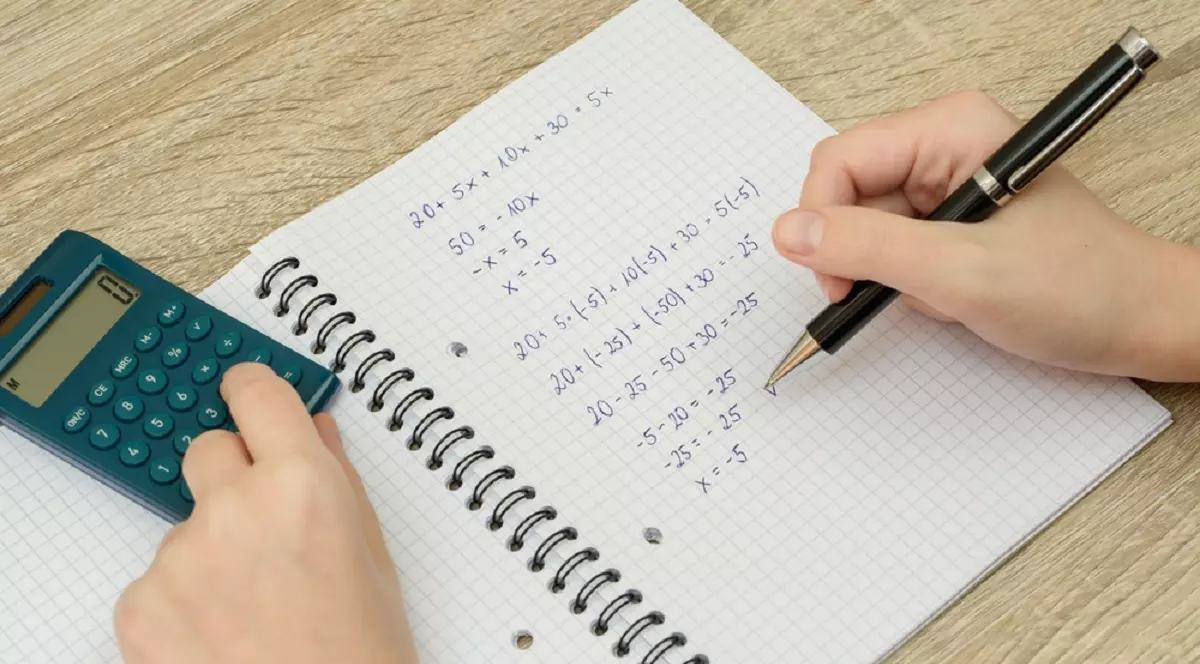 20 + 5x + 10x + 30 = 5x
50 = -10x
-x = 5
x = -5
20 + 5·(-5) + 10(-5) + 30 = 5(-5)
20 + (-25) + (-50) + 30 = -25
20 - 25 - 50 + 30 = -25
-5 - 20 = -25
-25 = -25
x = -5
M
ON/C CE MRC M- M+
7 8 9 % √
4 5 6 × ÷
1 2 3 -
=